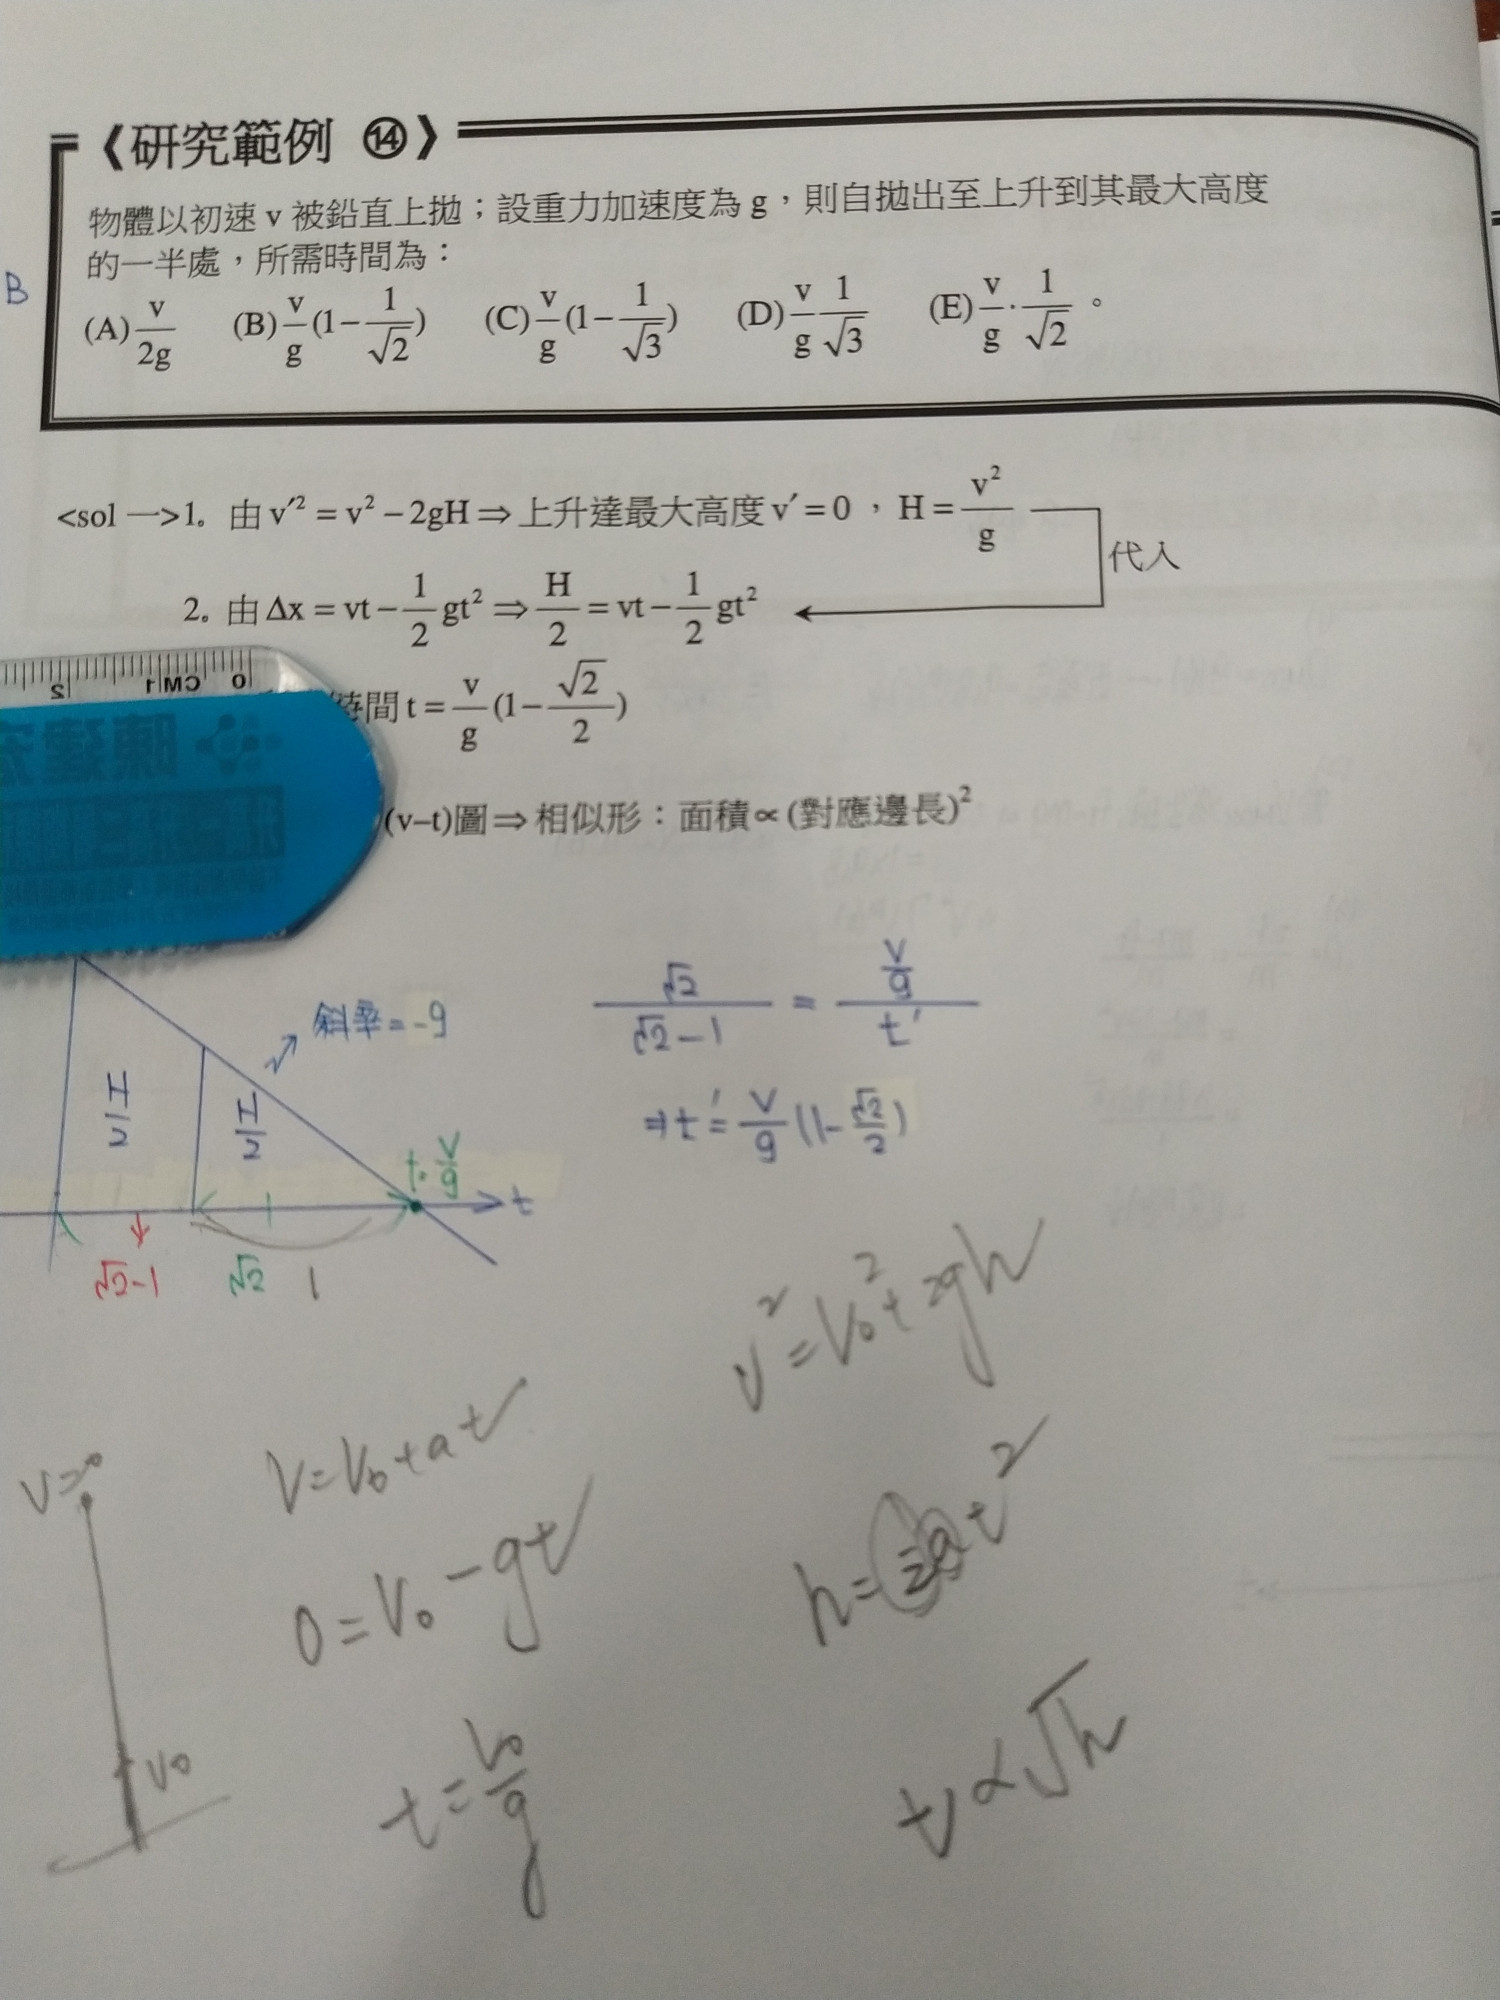 《研究範例 ⑭》
物體以初速 v 被鉛直上拋；設重力加速度為 g，則自拋出至上升到其最大高度
的一半處，所需時間為：
B
(A) v/2g (B) v/g (1−1/√2) (C) v/g (1−1/√3) (D) v/g 1/√3 (E) v/g · 1/√2 。
<sol 一>1。由 v′² = v² − 2gH ⇒ 上升達最大高度 v′ = 0，H = v²/g
代入
2。由 Δx = vt − 1/2 gt² ⇒ H/2 = vt − 1/2 gt²
2 1 CM 0
時間 t = v/g (1 − √2/2)
陳建宏
(v–t)圖 ⇒ 相似形：面積 ∝ (對應邊長)²
斜率 = -g
√2/(√2-1) = (v/g)/t'
⇒ t' = v/g (1-√2/2)
H/2 H/2
t = v/g
t
√2-1 √2 1
v² = v₀² + 2gh
v = v₀ + at
v=0
0 = v₀ - gt
h = ½gt²
v₀
t = v₀/g
t ∝ √h